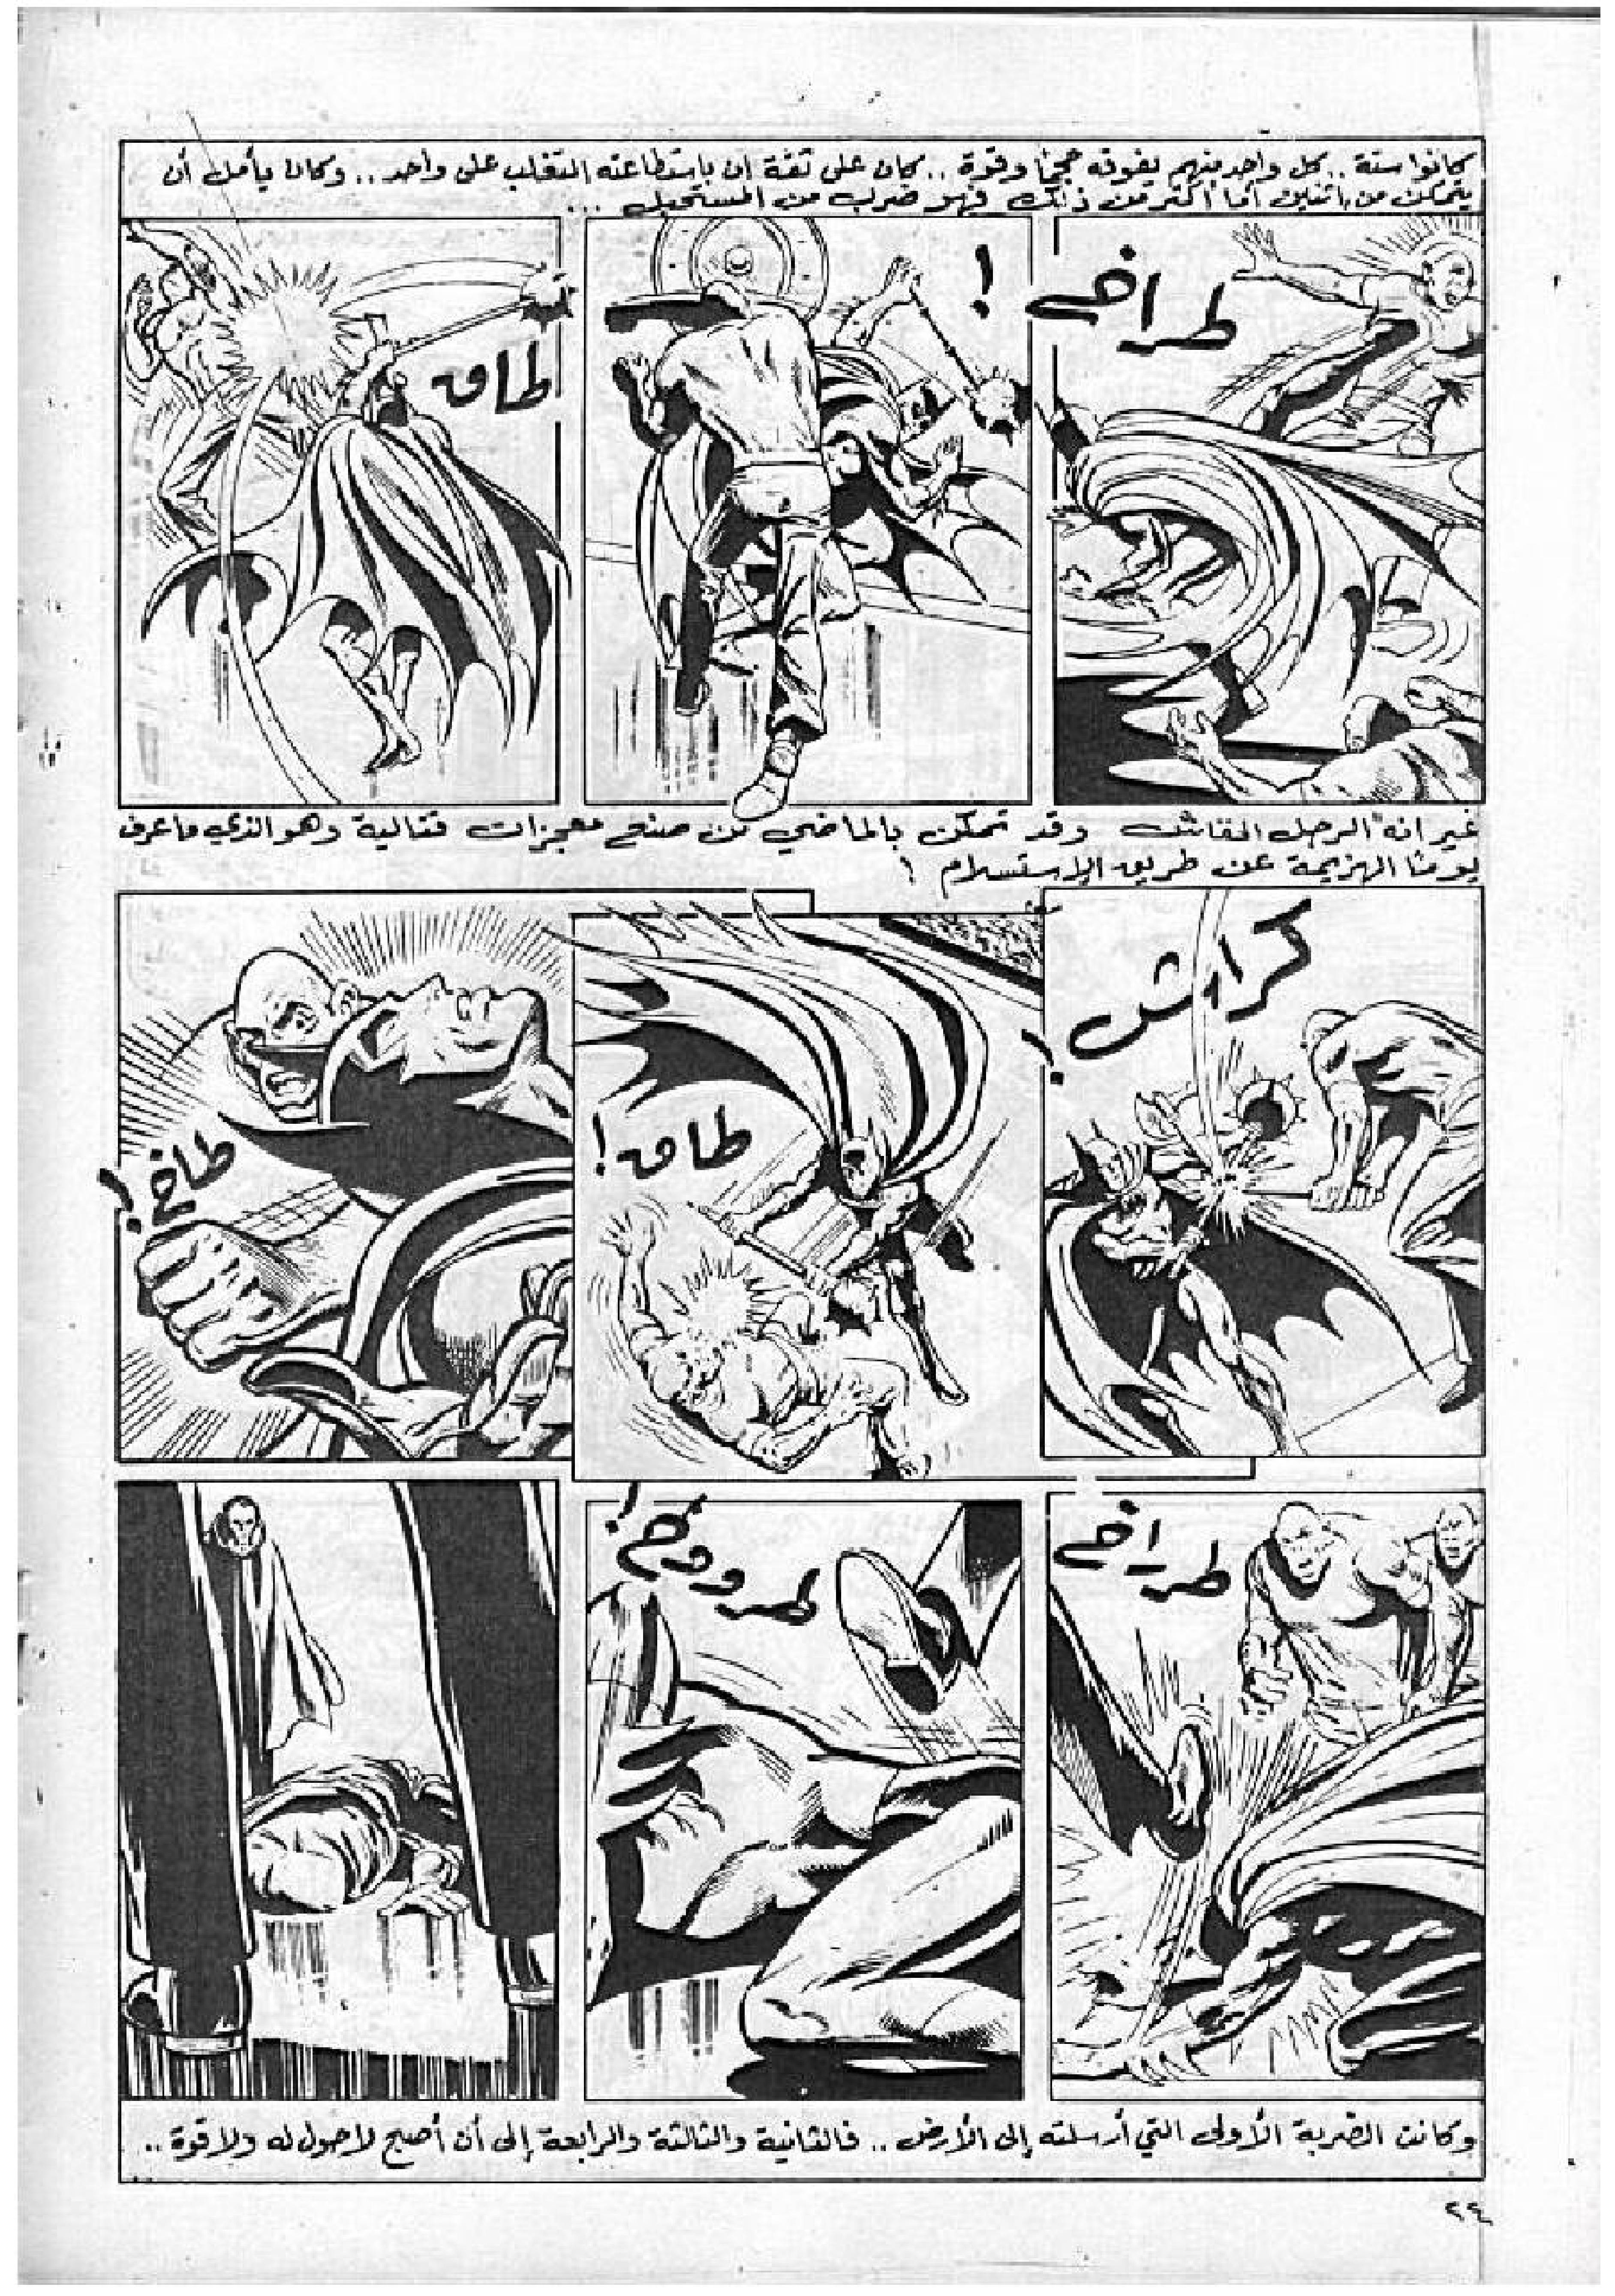 كانوا ستة .. كل واحد منهم يفوقه حجمًا وقوة .. كان على ثقة ان باستطاعته التغلب على واحد .. وكان يأمل أن
يتمكن من اثنين أما أكثر من ذلك فهو ضرب من المستحيل ...
طراخ !
طاق
غير ان "الرجل الخفاش" وقد تمكن بالماضي من صنع معجزات قتالية وهو الذي ما عرف
يومًا الهزيمة عن طريق الإستسلام !
كراش !
طاق !
طاخ !
طراخ
طرووخ !
وكانت الضربة الأولى التي أرسلته إلى الأرض .. فالثانية والثالثة والرابعة إلى أن أصبح لا حول له ولا قوة ..
٢٤